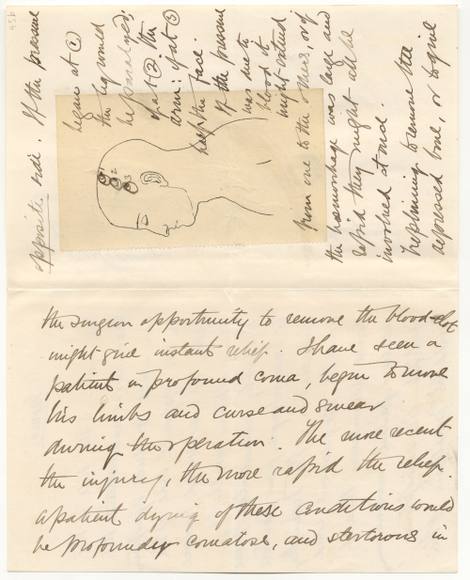 opposite side. If the pressure
began at ①
the leg would
be paralyzed;
if at ② the
arm: if at ③
the face.
If the pressure
was due to
blood it
might extend
from one to the others, or if
the haemorrhage was large and
rapid they might all be
involved at once.
Trephining to remove the
depressed bone, or to give
1
2
3
the surgeon opportunity to remove the blood-clot
might give instant relief. I have seen a
patient in profound coma, begin to move
his limbs and curse and swear
during the operation. The more recent
the injury, the more rapid the relief.
A patient dying of these conditions would
be profoundly comatose, and stertorous in